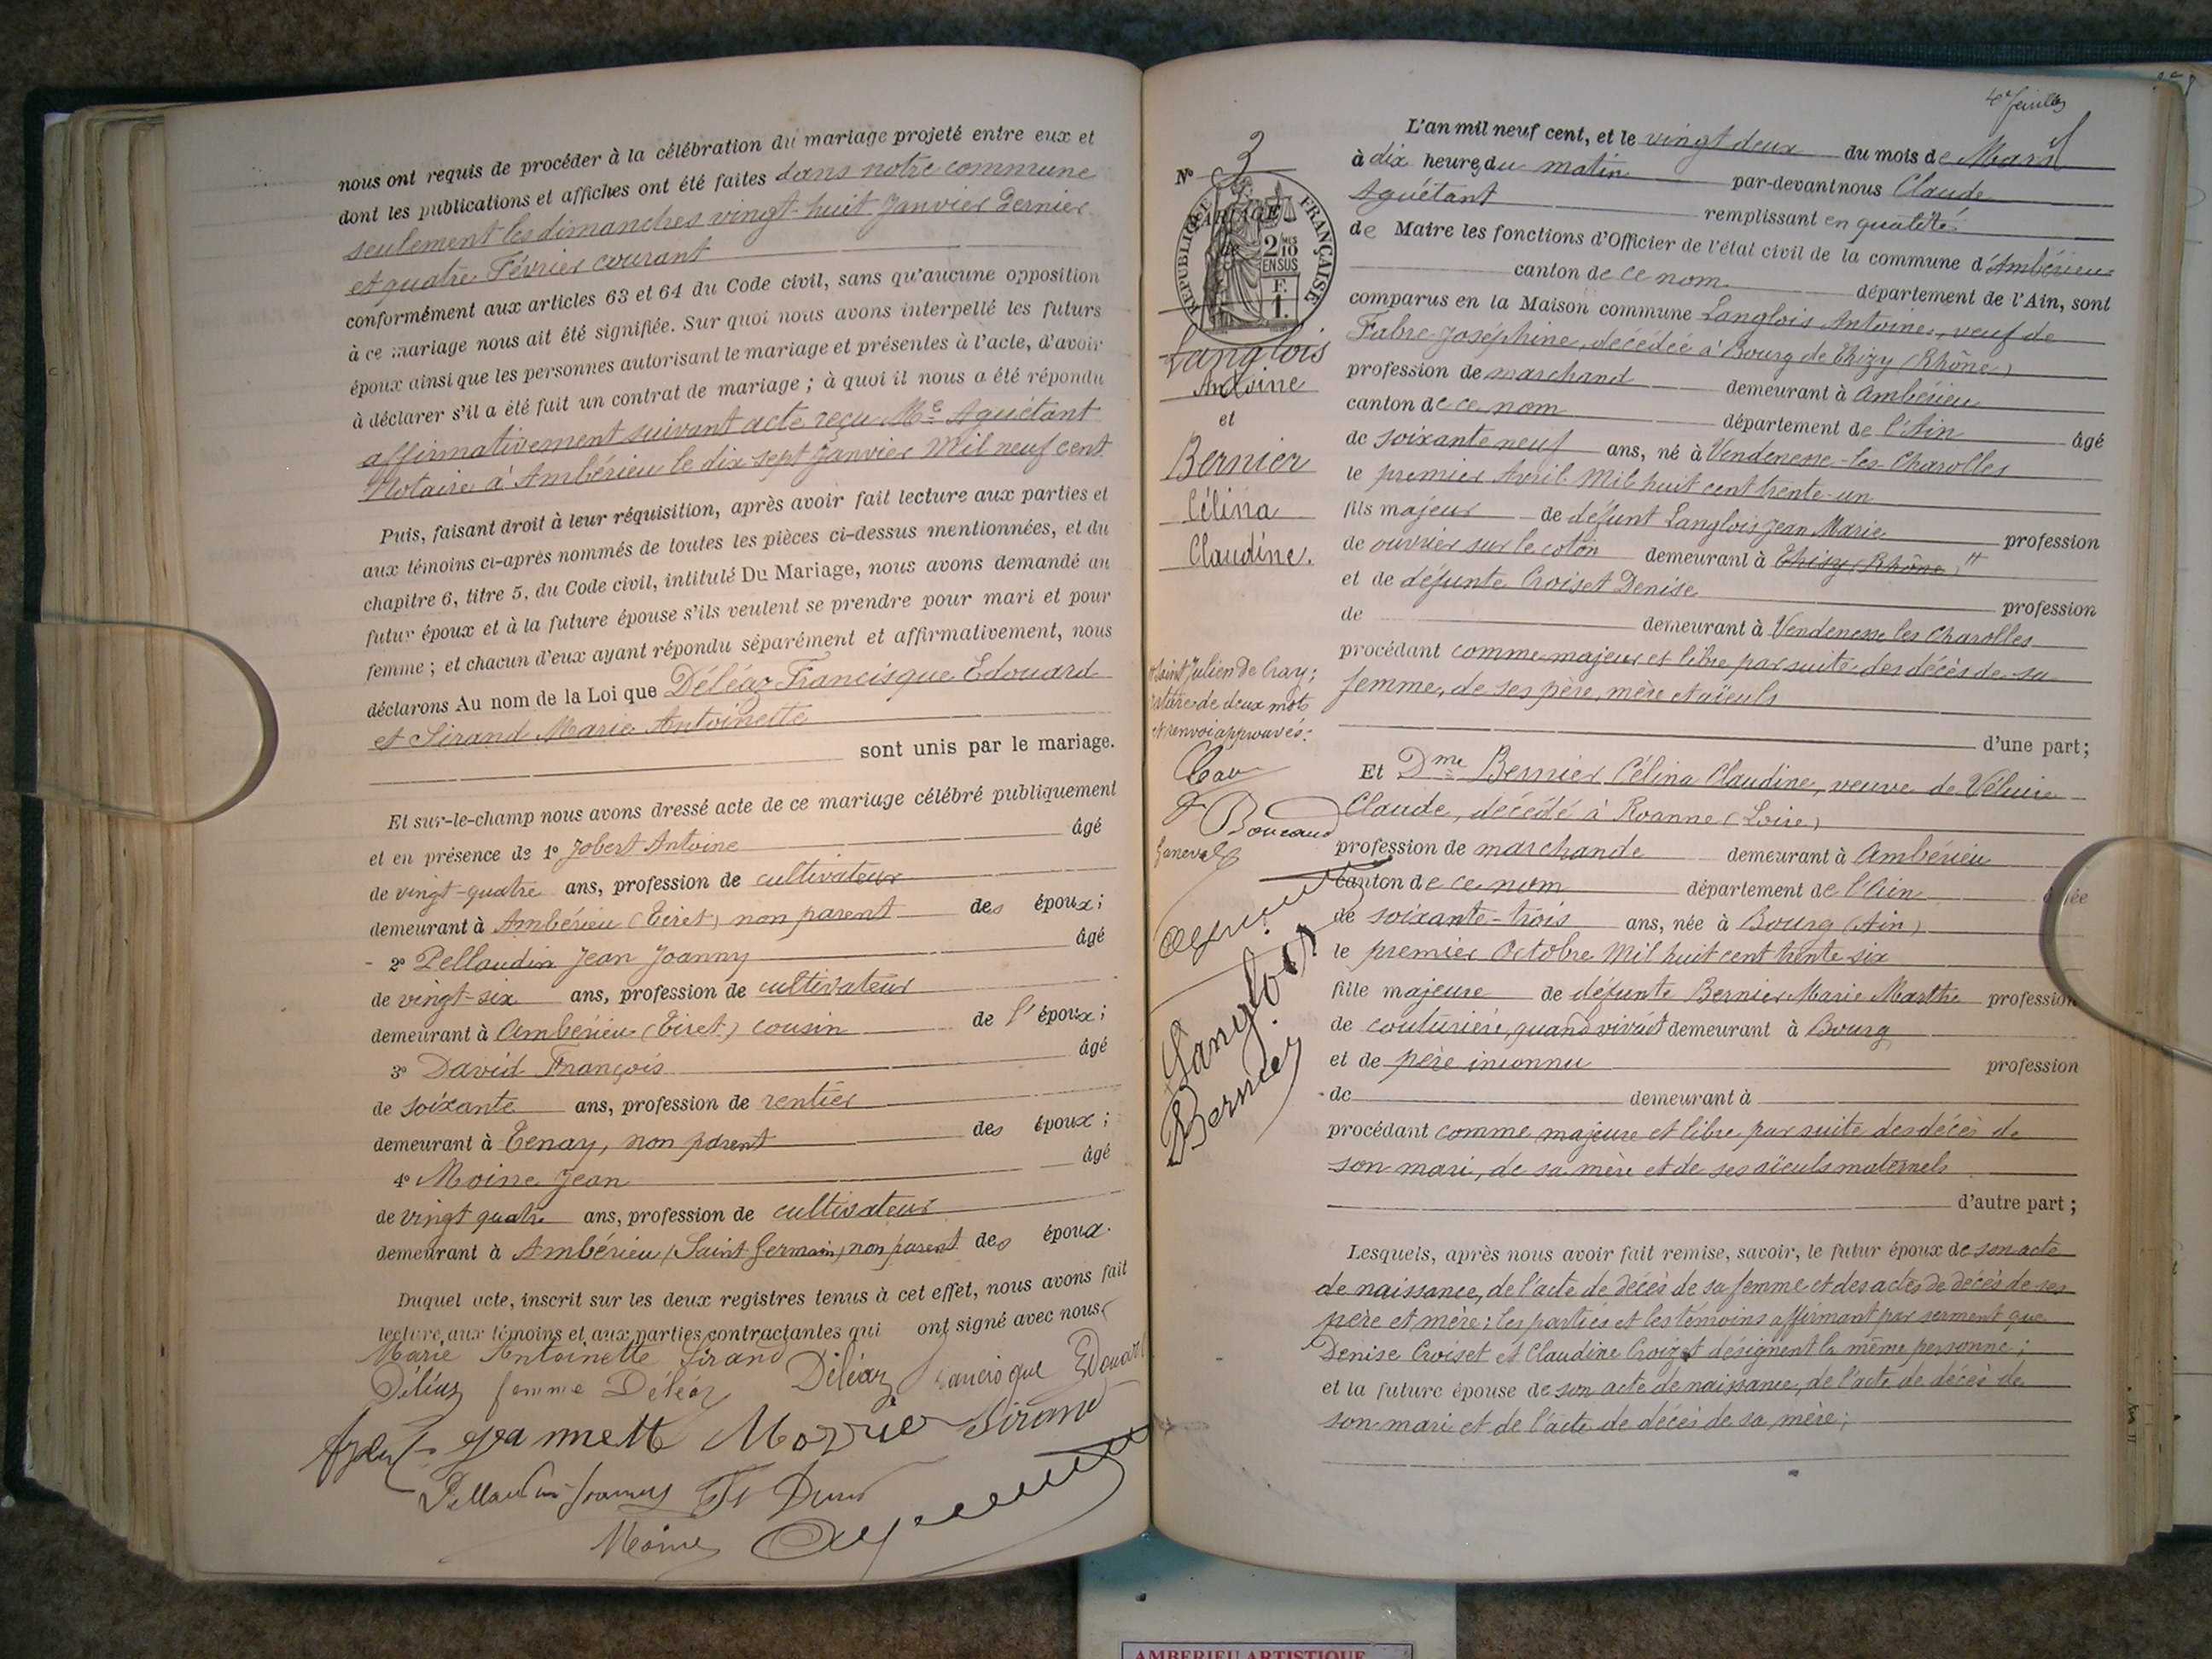 nous ont requis de procéder à la célébration du mariage projeté entre eux et
dont les publications et affiches ont été faites dans notre commune
seulement les dimanches vingt-huit Janvier dernier
et quatre Février courant
conformément aux articles 63 et 64 du Code civil, sans qu'aucune opposition
à ce mariage nous ait été signifiée. Sur quoi nous avons interpellé les futurs
époux ainsi que les personnes autorisant le mariage et présentes à l'acte, d'avoir
à déclarer s'il a été fait un contrat de mariage ; à quoi il nous a été répondu
affirmativement suivant acte reçu Me Aguétant
Notaire à Ambérieu le dix sept Janvier Mil neuf cent
Puis, faisant droit à leur réquisition, après avoir fait lecture aux parties et
aux témoins ci-après nommés de toutes les pièces ci-dessus mentionnées, et du
chapitre 6, titre 5, du Code civil, intitulé Du Mariage, nous avons demandé au
futur époux et à la future épouse s'ils veulent se prendre pour mari et pour
femme ; et chacun d'eux ayant répondu séparément et affirmativement, nous
déclarons Au nom de la Loi que Déléaz Francisque Edouard
et Sirand Marie Antoinette
sont unis par le mariage.
Et sur-le-champ nous avons dressé acte de ce mariage célébré publiquement
et en présence de 1° Jobert Antoine âgé
de vingt-quatre ans, profession de cultivateur
demeurant à Ambérieu (Tiret) non parent des époux ;
2° Pellaudin Jean Joanny âgé
de vingt-six ans, profession de cultivateur
demeurant à Ambérieu (Tiret) cousin de l'époux ;
3° David François âgé
de soixante ans, profession de rentier
demeurant à Tenay, non parent des époux ;
4° Moine Jean âgé
de vingt quatre ans, profession de cultivateur
demeurant à Ambérieu (Saint Germain) non parent des époux.
Duquel acte, inscrit sur les deux registres tenus à cet effet, nous avons fait
lecture aux témoins et aux parties contractantes qui ont signé avec nous
Marie Antoinette Sirand
Déléaz femme Déléaz Déléaz Francisque Edouard
Sirand
Moine
4e feuillet
N° 3
MARIAGE
RÉPUBLIQUE FRANÇAISE
2/10 EN SUS
F. 1.
Langlois
Antoine
et
Bernier
Célina
Claudine.
Saint Julien de Cray ;
rature de deux mots
et renvoi approuvés.
Boucaud
Langlois
Bernier
L'an mil neuf cent, et le vingt deux du mois de Mars
à dix heures du matin par-devant nous Claude
Aguétant remplissant en qualité
de Maire les fonctions d'Officier de l'état civil de la commune d'Ambérieu
canton de ce nom département de l'Ain, sont
comparus en la Maison commune Langlois Antoine, veuf de
Fabre Joséphine, décédée à Bourg de Thizy (Rhône)
profession de marchand demeurant à Ambérieu
canton de ce nom département de l'Ain âgé
de soixante neuf ans, né à Vendenesse-les-Charolles
le premier Avril Mil huit cent trente-un
fils majeur de défunt Langlois Jean Marie profession
de ouvrier sur le coton demeurant à Thizy (Rhône)
et de défunte Croiset Denise profession
de demeurant à Vendenesse les Charolles
procédant comme majeur et libre par suite des décès de sa
femme, de ses père, mère et aïeuls
d'une part ;
Et Dme Bernier Célina Claudine, veuve de Véluire
Claude, décédé à Roanne (Loire)
profession de marchande demeurant à Ambérieu
canton de ce nom département de l'Ain âgée
de soixante-trois ans, née à Bourg (Ain)
le premier Octobre Mil huit cent trente-six
fille majeure de défunte Bernier Marie Marthe profession
de couturière, quand vivait demeurant à Bourg
et de père inconnu profession
de demeurant à
procédant comme majeure et libre par suite des décès de
son mari, de sa mère et de ses aïeuls maternels
d'autre part ;
Lesquels, après nous avoir fait remise, savoir, le futur époux de son acte
de naissance, de l'acte de décès de sa femme et des actes de décès de ses
père et mère ; les parties et les témoins affirmant par serment que
Denise Croiset et Claudine Croizet désignent la même personne ;
et la future épouse de son acte de naissance, de l'acte de décès de
son mari et de l'acte de décès de sa mère ;
AMBERIEU ARTISTIQUE